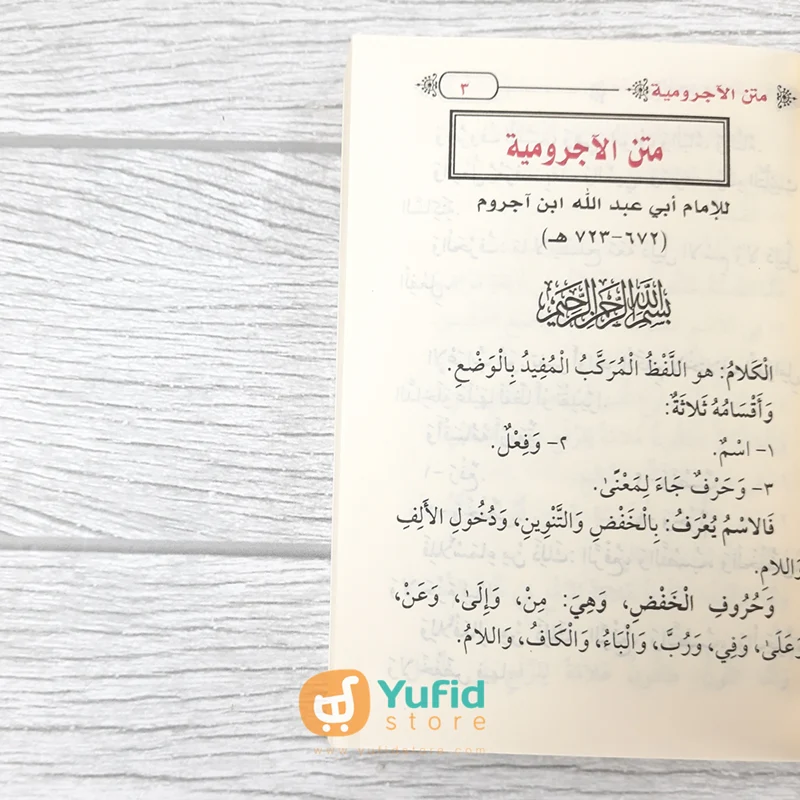 متن الآجرومية ٣
متن الآجرومية
للإمام أبي عبد الله ابن آجروم
(٦٧٢-٧٢٣ هـ)
بسم الله الرحمن الرحيم
الْكَلامُ: هو اللَّفْظُ الْمُرَكَّبُ الْمُفِيدُ بِالْوَضْعِ.
وَأَقْسَامُهُ ثَلاثَةٌ:
١- اسْمٌ. ٢- وَفِعْلٌ.
٣- وَحَرْفٌ جَاءَ لِمَعْنًى.
فَالاسْمُ يُعْرَفُ: بِالْخَفْضِ وَالتَّنْوِينِ، وَدُخُولِ الأَلِفِ
وَاللامِ.
وَحُرُوفِ الْخَفْضِ، وَهِيَ: مِنْ، وَإِلَىٰ، وَعَنْ،
وَعَلَىٰ، وَفِي، وَرُبَّ، وَالْبَاءُ، وَالْكَافُ، وَاللامُ.
Yufid
store
www.yufidstore.com